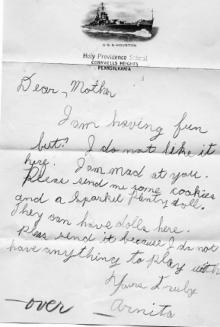 U.S.S. HOUSTON
Holy Providence School
CORNWELLS HEIGHTS
PENNSYLVANIA
Dear, Mother
I am having fun
but I do not like it
here. I am mad at you.
Please send me some cookies
and a Sparkel Plenty doll.
They can have dolls here.
Pleas send it because I do not
have anything to play with
Yours truly
Arnita
-over-